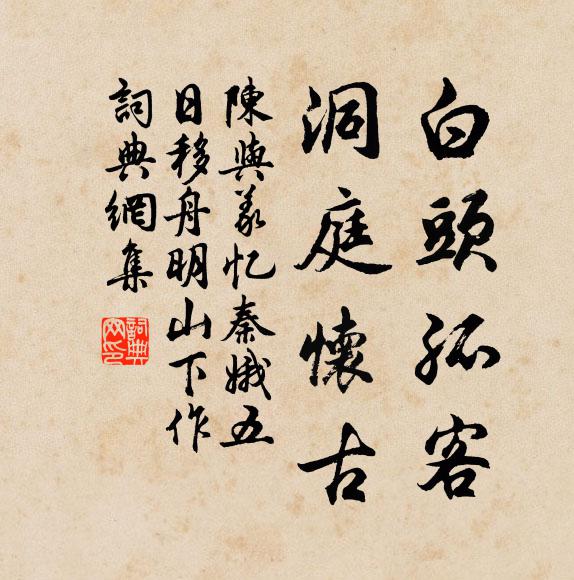 白頭孤客
洞庭懷古
陳與義忆秦娥五
日移舟明山下作
詞典網集
詞典網印